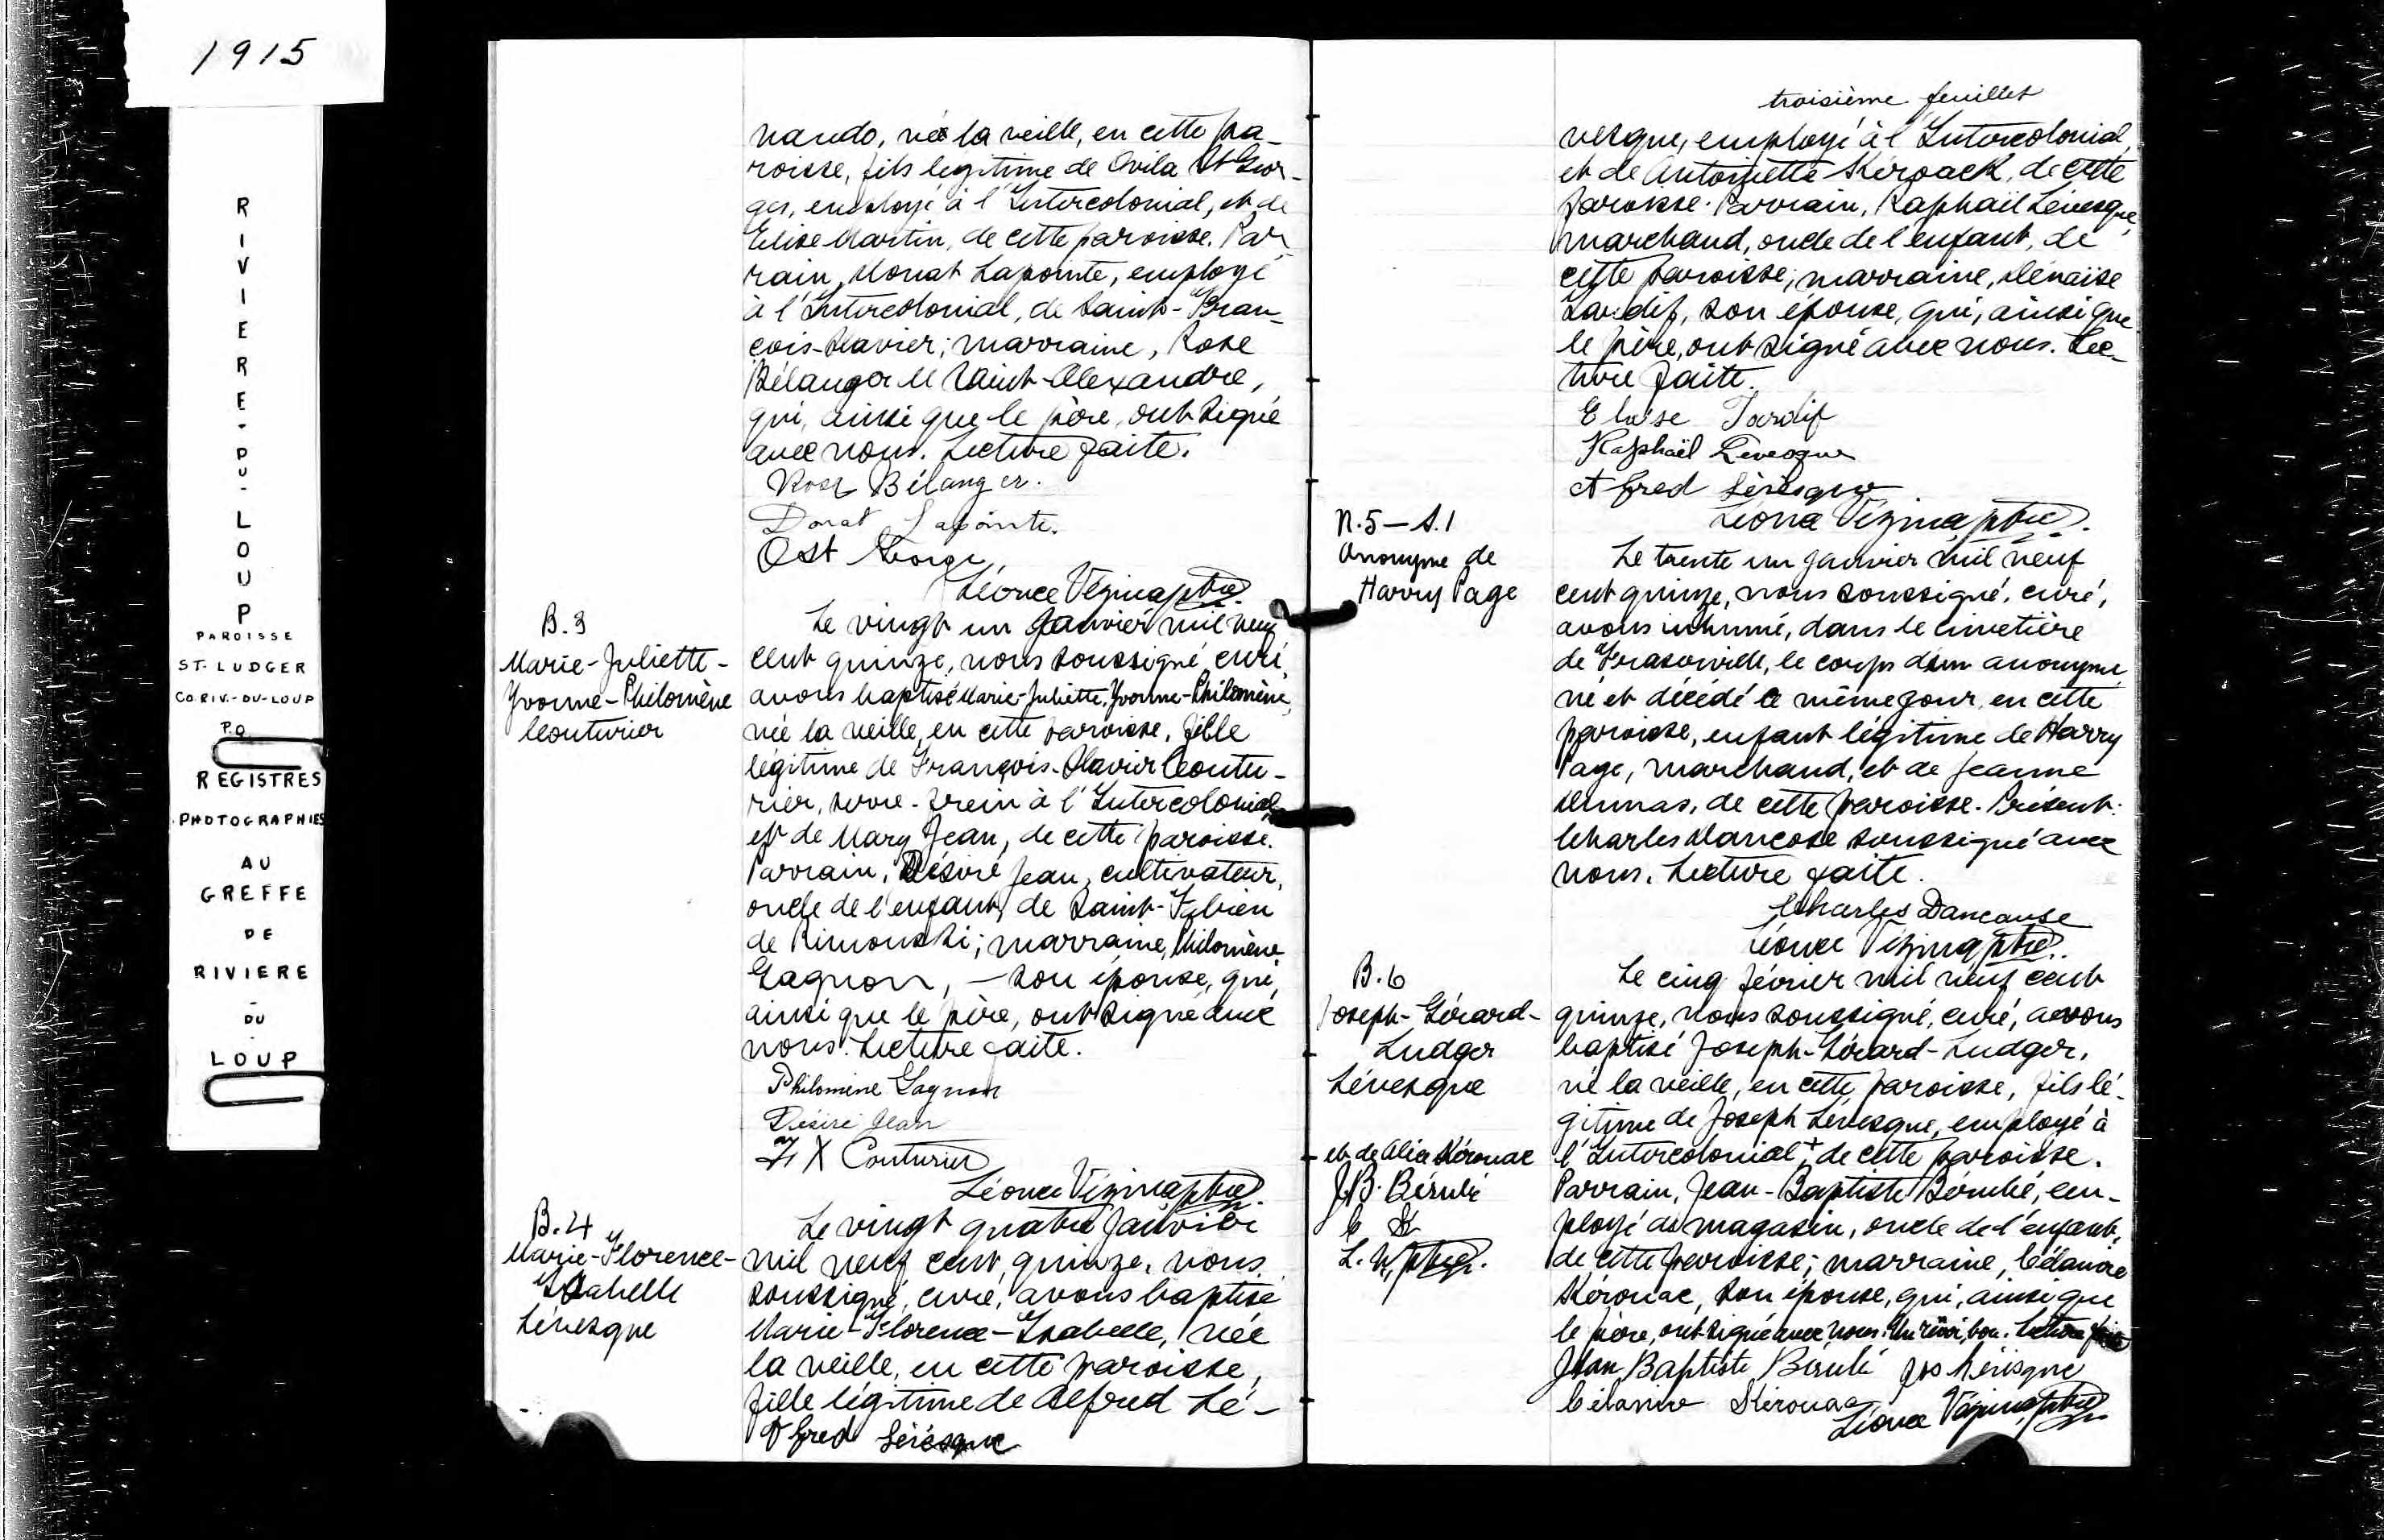 1915
RIVIERE-DU-LOUP
PAROISSE
ST-LUDGER
CO. RIV.-DU-LOUP
P.Q.
REGISTRES
PHOTOGRAPHIES
AU
GREFFE
DE
RIVIERE
-
DU
-
LOUP
nando, né la veille, en cette pa-
roisse, fils légitime de Ovila St Geor-
ges, employé à l'Intercolonial, et de
Elise Martin, de cette paroisse. Par
rain, Donat Lapointe, employé
à l'Intercolonial, de Saint-Fran-
çois-Xavier; marraine, Rose
Bélanger de Saint-Alexandre,
qui, ainsi que le père, ont signé
avec nous. Lecture faite.
Rose Bélanger.
Donat Lapointe.
O St George
Léonce Vézina ptre.
B.3
Marie-Juliette-
Yvonne-Philomène
Couturier
Le vingt un Janvier mil neuf
cent quinze, nous soussigné, curé,
avons baptisé Marie-Juliette-Yvonne-Philomène,
née la veille, en cette paroisse, fille
légitime de François-Xavier Coutu-
rier, serre-frein à l'Intercolonial,
et de Mary Jean, de cette paroisse.
Parrain, Désiré Jean, cultivateur,
oncle de l'enfant, de Saint-Fabien
de Rimouski; marraine, Philomène
Gagnon, — son épouse, qui,
ainsi que le père, ont signé avec
nous. Lecture faite.
Philomène Gagnon
Désiré Jean
F X Couturier
Léonce Vézina ptre.
B.4
Marie-Florence-
Isabelle
Lévesque
Le vingt quatre Janvier
mil neuf cent quinze, nous
soussigné, curé, avons baptisé
Marie-Florence-Isabelle, née
la veille, en cette paroisse,
fille légitime de Alfred Lé-
Alfred Lévesque
troisième feuillet
vesque, employé à l'Intercolonial,
et de Antoinette Kéroack, de cette
paroisse. Parrain, Raphaël Lévesque,
marchand, oncle de l'enfant, de
cette paroisse; marraine,
Tardif, son épouse, qui, ainsi que
le père, ont signé avec nous. Lec-
ture faite.
Tardif
Raphaël Lévesque
Alfred Lévesque
Léonce Vézina ptre.
N.5 — S.1
Anonyme de
Harry Page
Le trente un janvier mil neuf
cent quinze, nous soussigné, curé,
avons inhumé, dans le cimetière
de Fraserville, le corps d'un anonyme
né et décédé le même jour, en cette
paroisse, enfant légitime de Harry
Page, marchand, et de Jeanne
Dumas, de cette paroisse. Présent:
Charles Dancose soussigné avec
nous. Lecture faite.
Charles Dancause
Léonce Vézina ptre.
B.6
Joseph-Gérard-
Ludger
Lévesque
Le cinq février mil neuf cent
quinze, nous soussigné, curé, avons
baptisé Joseph-Gérard-Ludger,
né la veille, en cette paroisse, fils lé-
gitime de Joseph Lévesque, employé à
l'Intercolonial + de cette paroisse.
Parrain, Jean-Baptiste Bérubé, em-
ployé de magasin, oncle de l'enfant,
de cette paroisse; marraine, Célanire
Kérouac, son épouse, qui, ainsi que
le père, ont signé avec nous. Un renvoi, bon. Lecture faite
et de Alice Kérouac
J.B. Bérubé
C K
L. V. ptre.
Jean Baptiste Bérubé Jos Lévesque
Célanire Kérouac
Léonce Vézina ptre